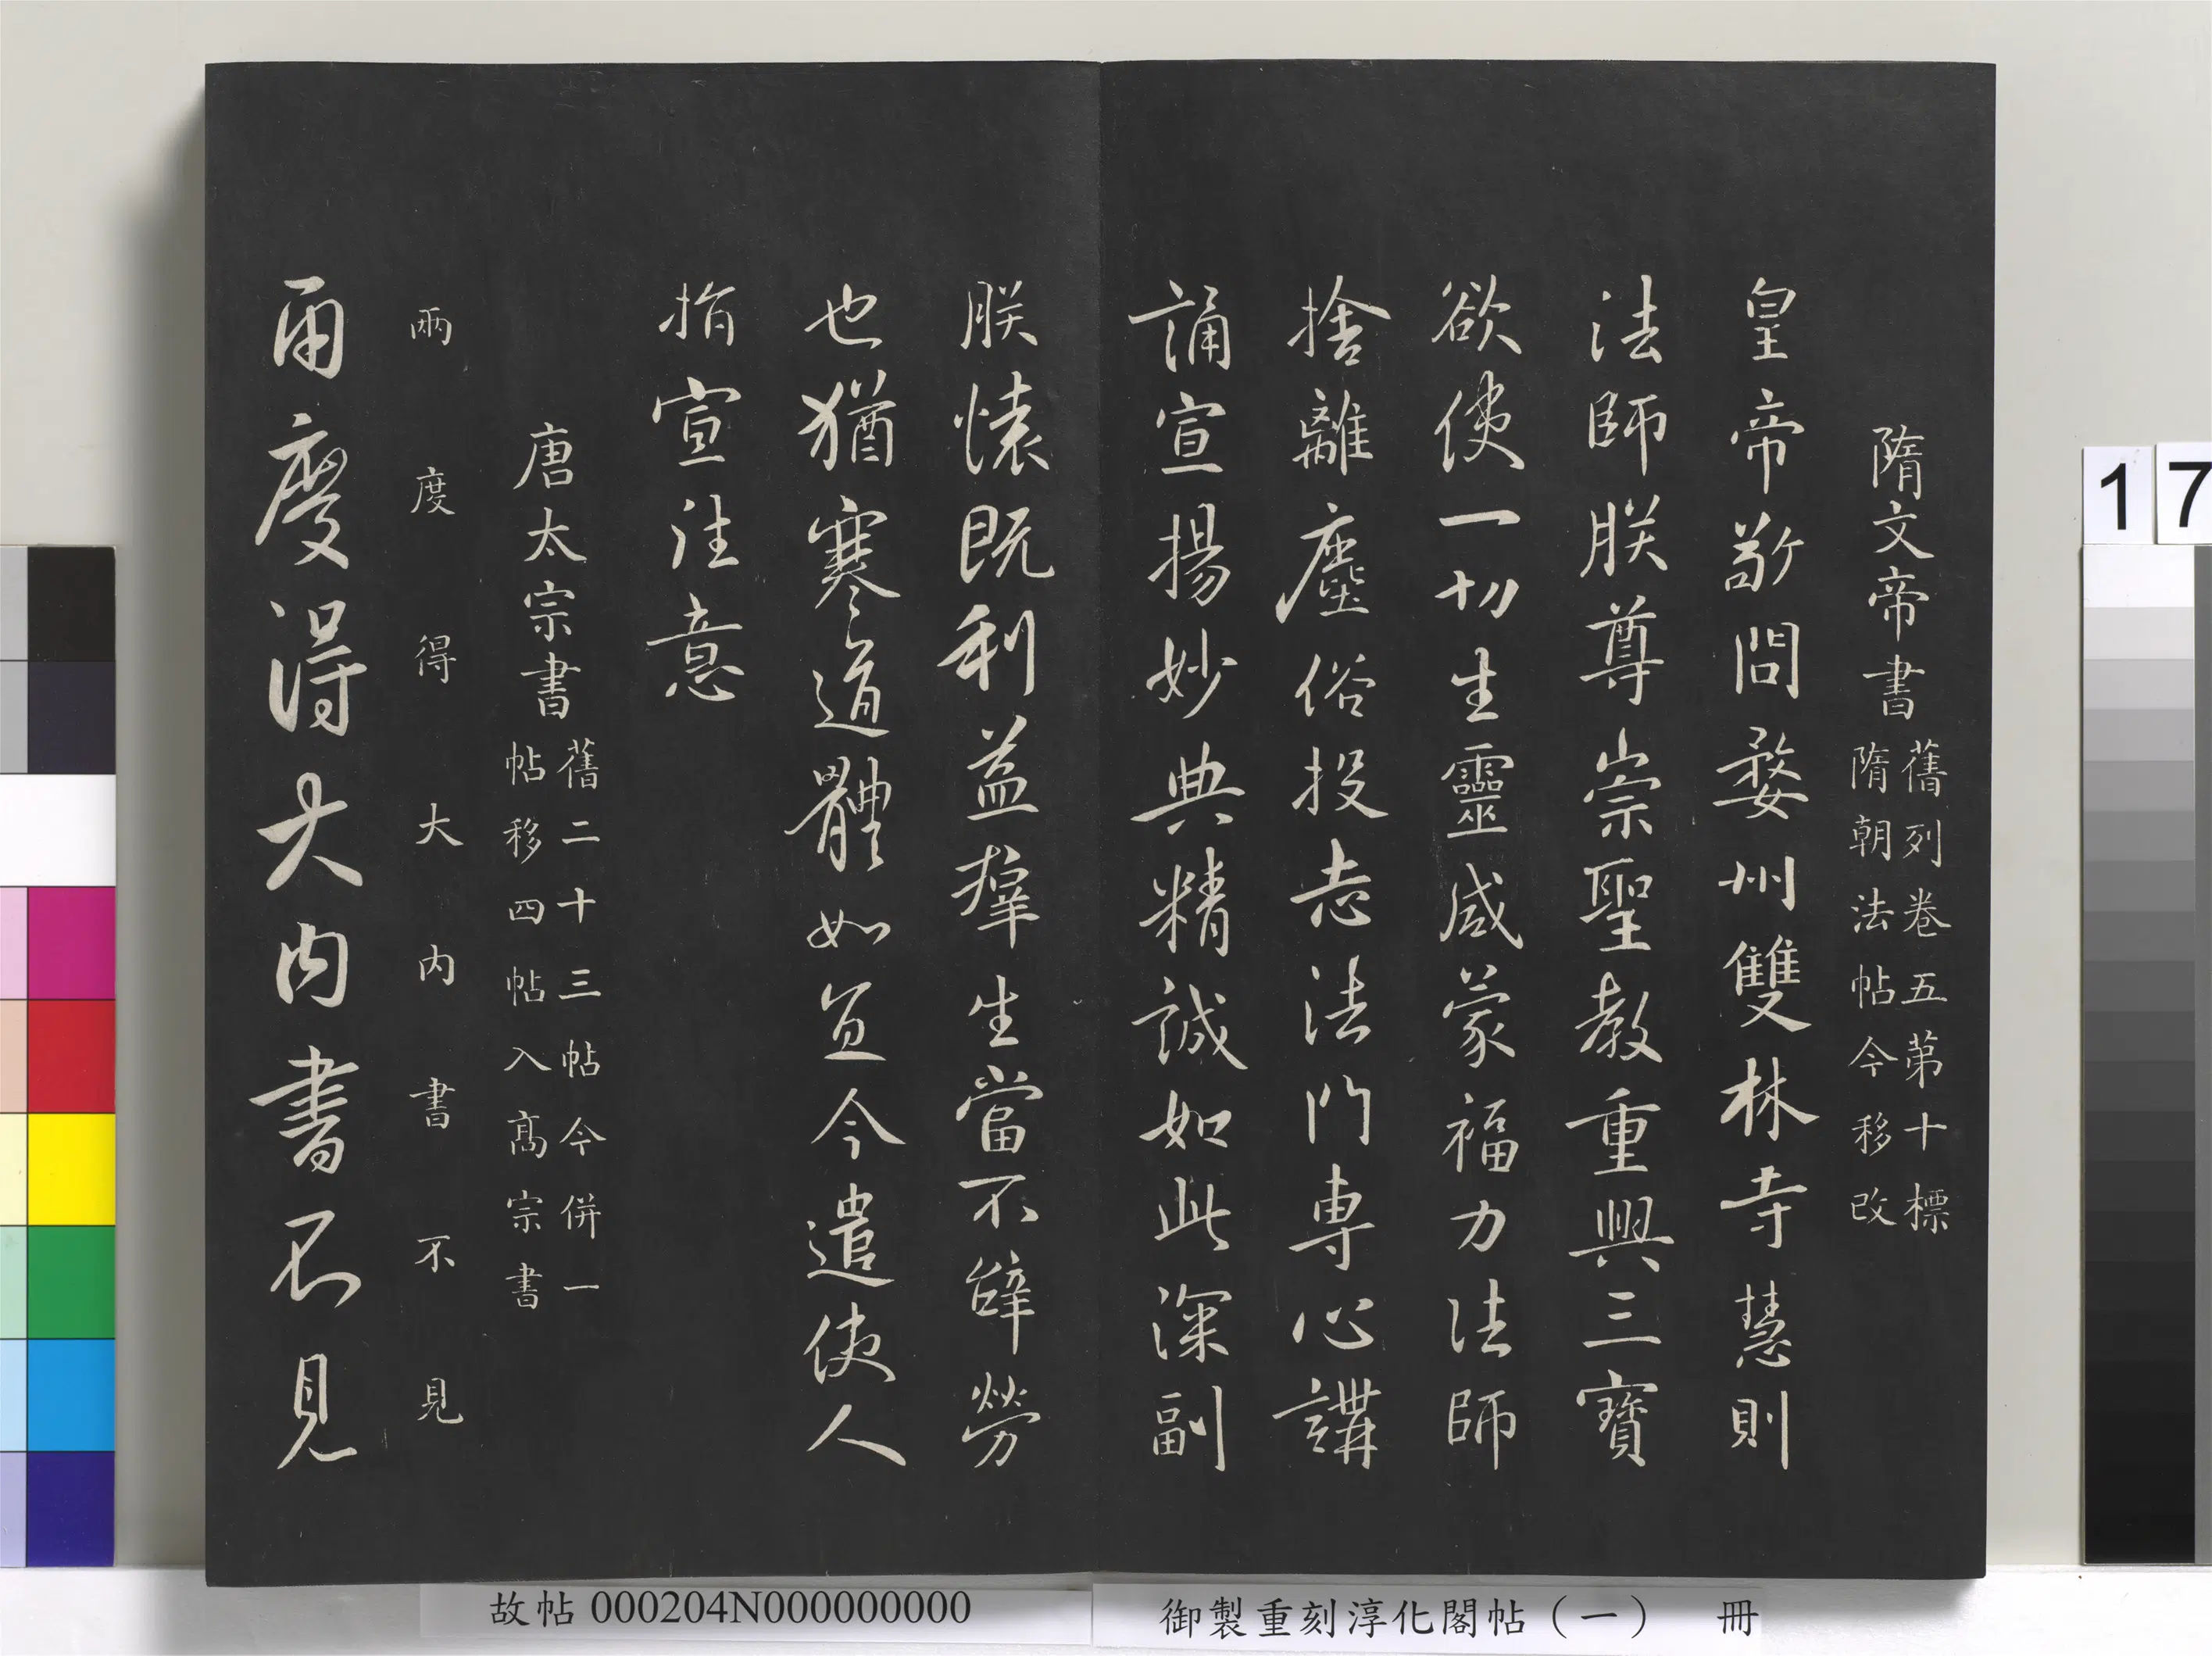 隋文帝書
舊列卷五第十標
隋朝法帖今移改
皇帝敬問婺州雙林寺慧則
法師朕尊崇聖教重興三寶
欲使一切生靈咸蒙福力法師
捨離塵俗投志法門專心講
誦宣揚妙典精誠如此深副
朕懷既利益羣生當不辭勞
也猶寒道體如宜今遣使人
指宣往意
唐太宗書
舊二十三帖今併一
帖移四帖入髙宗書
兩度得大內書不見
兩度得大內書不見
17
故帖 000204N000000000
御製重刻淳化閣帖(一) 冊